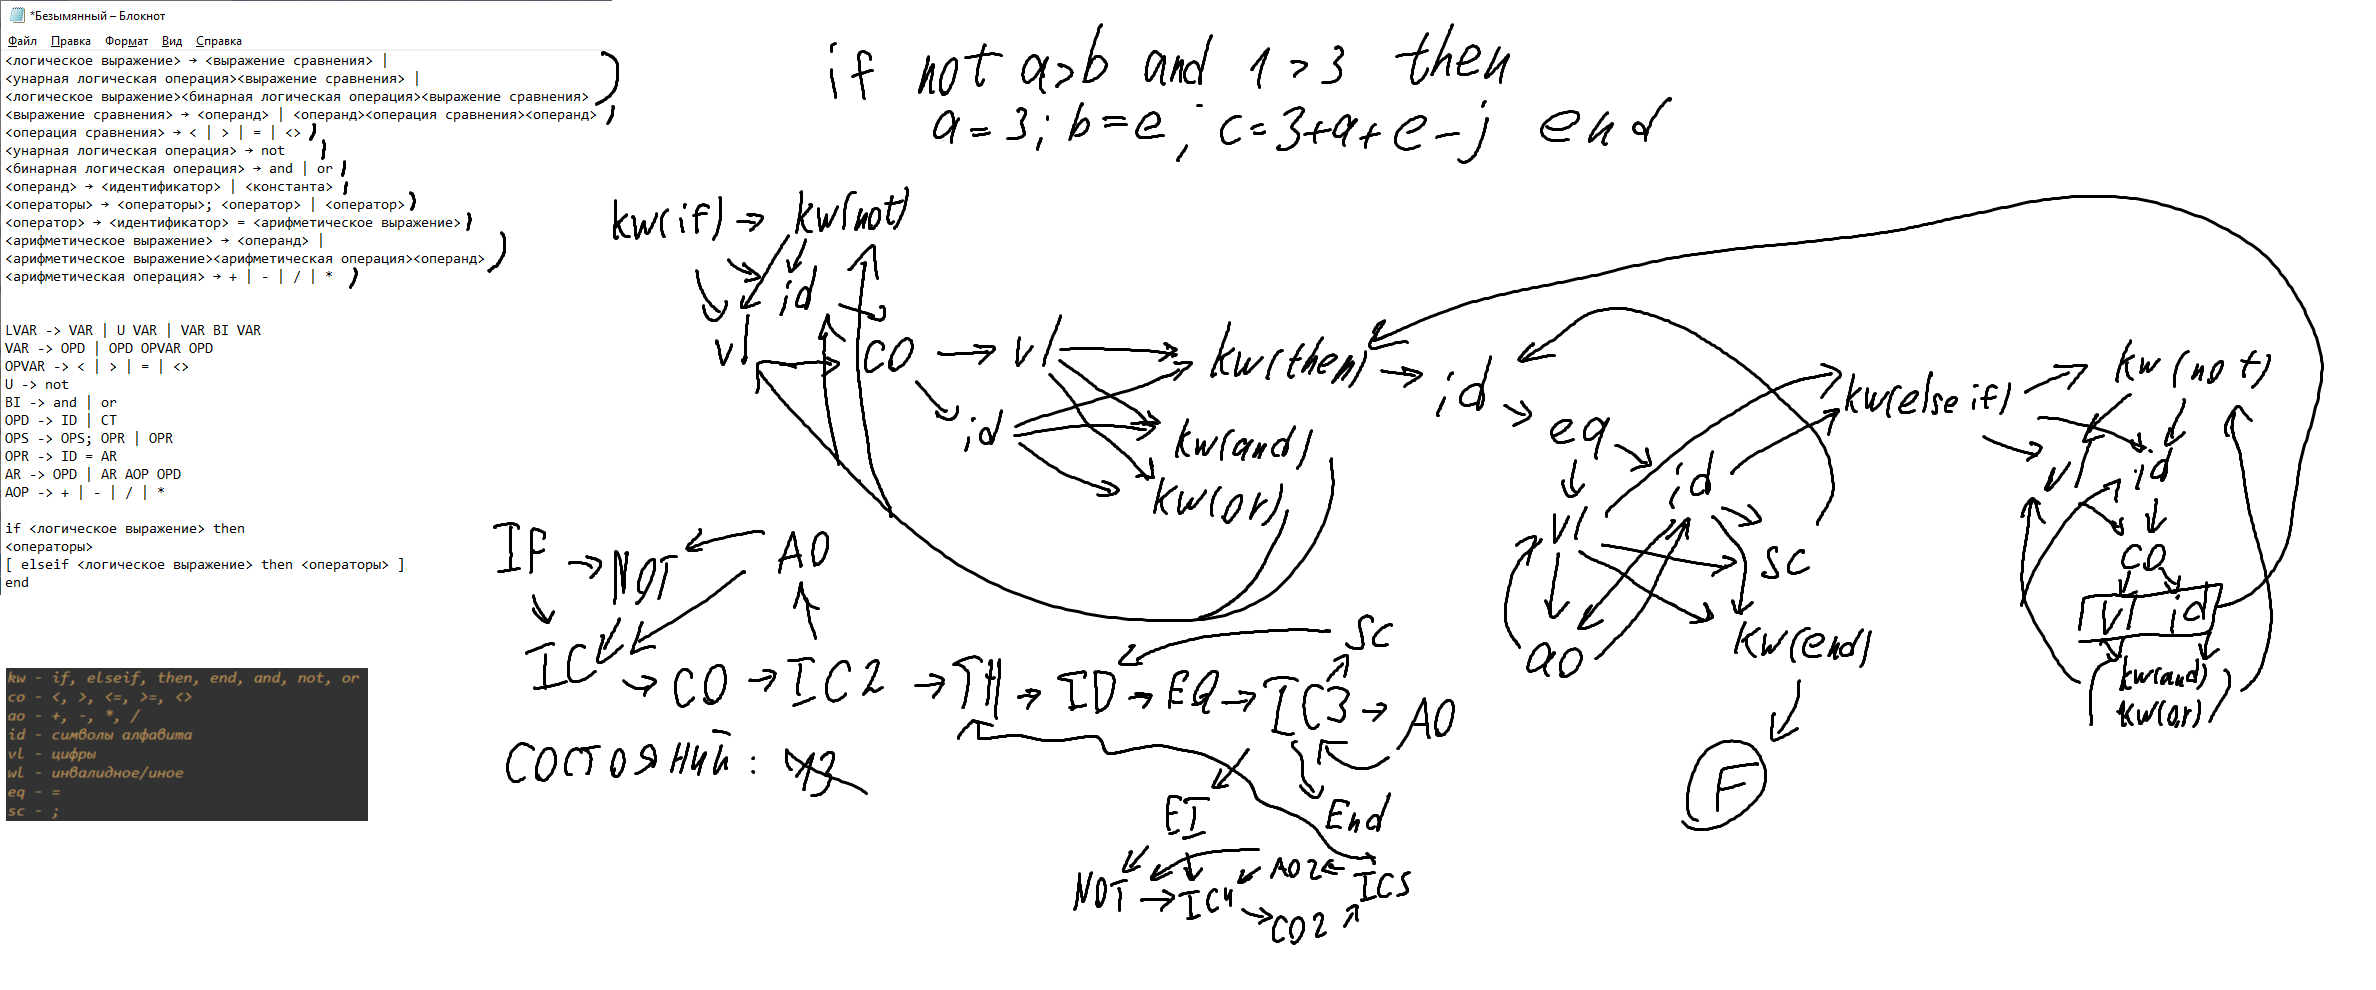 *Безымянный – Блокнот
Файл Правка Формат Вид Справка
<логическое выражение> → <выражение сравнения> |
<унарная логическая операция><выражение сравнения> |
<логическое выражение><бинарная логическая операция><выражение сравнения>
<выражение сравнения> → <операнд> | <операнд><операция сравнения><операнд>
<операция сравнения> → < | > | = | <>
<унарная логическая операция> → not
<бинарная логическая операция> → and | or
<операнд> → <идентификатор> | <константа>
<операторы> → <операторы>; <оператор> | <оператор>
<оператор> → <идентификатор> = <арифметическое выражение>
<арифметическое выражение> → <операнд> |
<арифметическое выражение><арифметическая операция><операнд>
<арифметическая операция> → + | - | / | *
LVAR -> VAR | U VAR | VAR BI VAR
VAR -> OPD | OPD OPVAR OPD
OPVAR -> < | > | = | <>
U -> not
BI -> and | or
OPD -> ID | CT
OPS -> OPS; OPR | OPR
OPR -> ID = AR
AR -> OPD | AR AOP OPD
AOP -> + | - | / | *
if <логическое выражение> then
<операторы>
[ elseif <логическое выражение> then <операторы> ]
end
kw - if, elseif, then, end, and, not, or
co - <, >, <=, >=, <>
ao - +, -, *, /
id - символы алфавита
vl - цифры
wl - инвалидное/иное
eq - =
sc - ;
if not a>b and 1 > 3 then
a = 3; b = e; c = 3+a+e-j end
kw(if) → kw(not)
id
vl
co
vl
id
kw(then)
kw(and)
kw(or)
id
eq
id
vl
sc
ao
kw(end)
F
kw(else if)
kw(not)
vl
id
co
vl id
kw(and)
kw(or)
IF → NOT
AO
IC
CO → IC2 → TH → ID → EQ → IC3 → AO
SC
End
EI
NOT → IC4
AO2
IC5
CO2
СОСТОЯНИЙ: